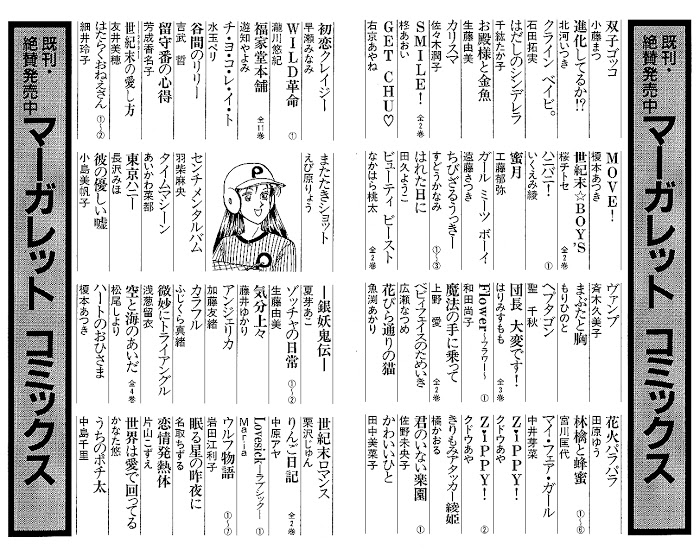 既刊・
絶賛発売中
マーガレット コミックス
双子ゴッコ
小藤まつ
進化してるか!?
北河いつき
クライン ベイビ。
石田拓実
はだしのシンデレラ
お殿様と金魚
生藤由美
カリスマ
佐々木潤子
SMILE! 全2巻
柊あおい
GET CHU♡
右京あやね
MOVE!
榎本あつき
世紀末☆BOY'S 全2巻
桜チーセ
ハニバニ! ①
いくえみ綾
蜜月
工藤郁弥
ガール ミーツ ボーイ
遠藤さつき
ちびざるうっきー ①〜③
すどうかなみ
はれた日に
田久ようこ
ビューティ ビースト 全2巻
なかはら桃太
ヴァンプ
斉木久美子
まぶたと胸
もりひのと
ヘプタゴン
聖 千秋
団長 大変です! 全3巻
はりみすもも
Flower〜フラワー〜 ①
和田尚子
魔法の手に乗って 全2巻
上野 愛
ベビィフェイスのためいき
広瀬なつめ
花びら通りの猫
魚渕あかり
花火パラパラ
田原ゆう
林檎と蜂蜜 ①〜⑥
宮川匡代
マイ・フェア・ガール
中井芽菜
ZiPPY! ①
クドウあや
ZiPPY! ②
クドウあや
きりもみアタッカー綾姫
橘かおる
君のいない楽園 ①
佐野未央子
かわいいひと
田中美菜子
初恋クレイジー
早瀬みなみ
WILD革命 ①
瀧川悠紀
福家堂本舗 全11巻
遊知やよみ
チ・ョ・コ・レ・イ・ト
水玉ペリ
谷間のリリー
吉武 哲
留守番の心得
芳成香名子
世紀末の愛し方
友井美穂
はたらくおねえさん ①〜②
細井玲子
またたきショット
えび原りょう
センチメンタルバム
羽柴麻央
タイムマシーン
あいかわ菜都
東京ハニー
長沢みほ
彼の優しい嘘
小島美帆子
―銀妖鬼伝―
夏芽あこ
ゾッチャの日常 ①〜②
生藤由美
気分上々
藤井ゆかり
アンジェリカ
加藤友緒
カラフル
ふじくら真緒
微妙にトライアングル
浅葱留衣
空と海のあいだ 全4巻
松尾しより
ハートのおひさま
榎本あつき
世紀末ロマンス
栗沢じゅん
りんご日記 全2巻
中原アヤ
Lovesick―ラブシック― ①
Maria
ウルフ物語 ①〜⑦
岩田江利子
眠る星の昨夜に
名取ちずる
恋情発熱体
片山こずえ
世界は愛で回ってる
かなた悠
うちのポチ太
中島千里
既刊・
絶賛発売中
マーガレット コミックス